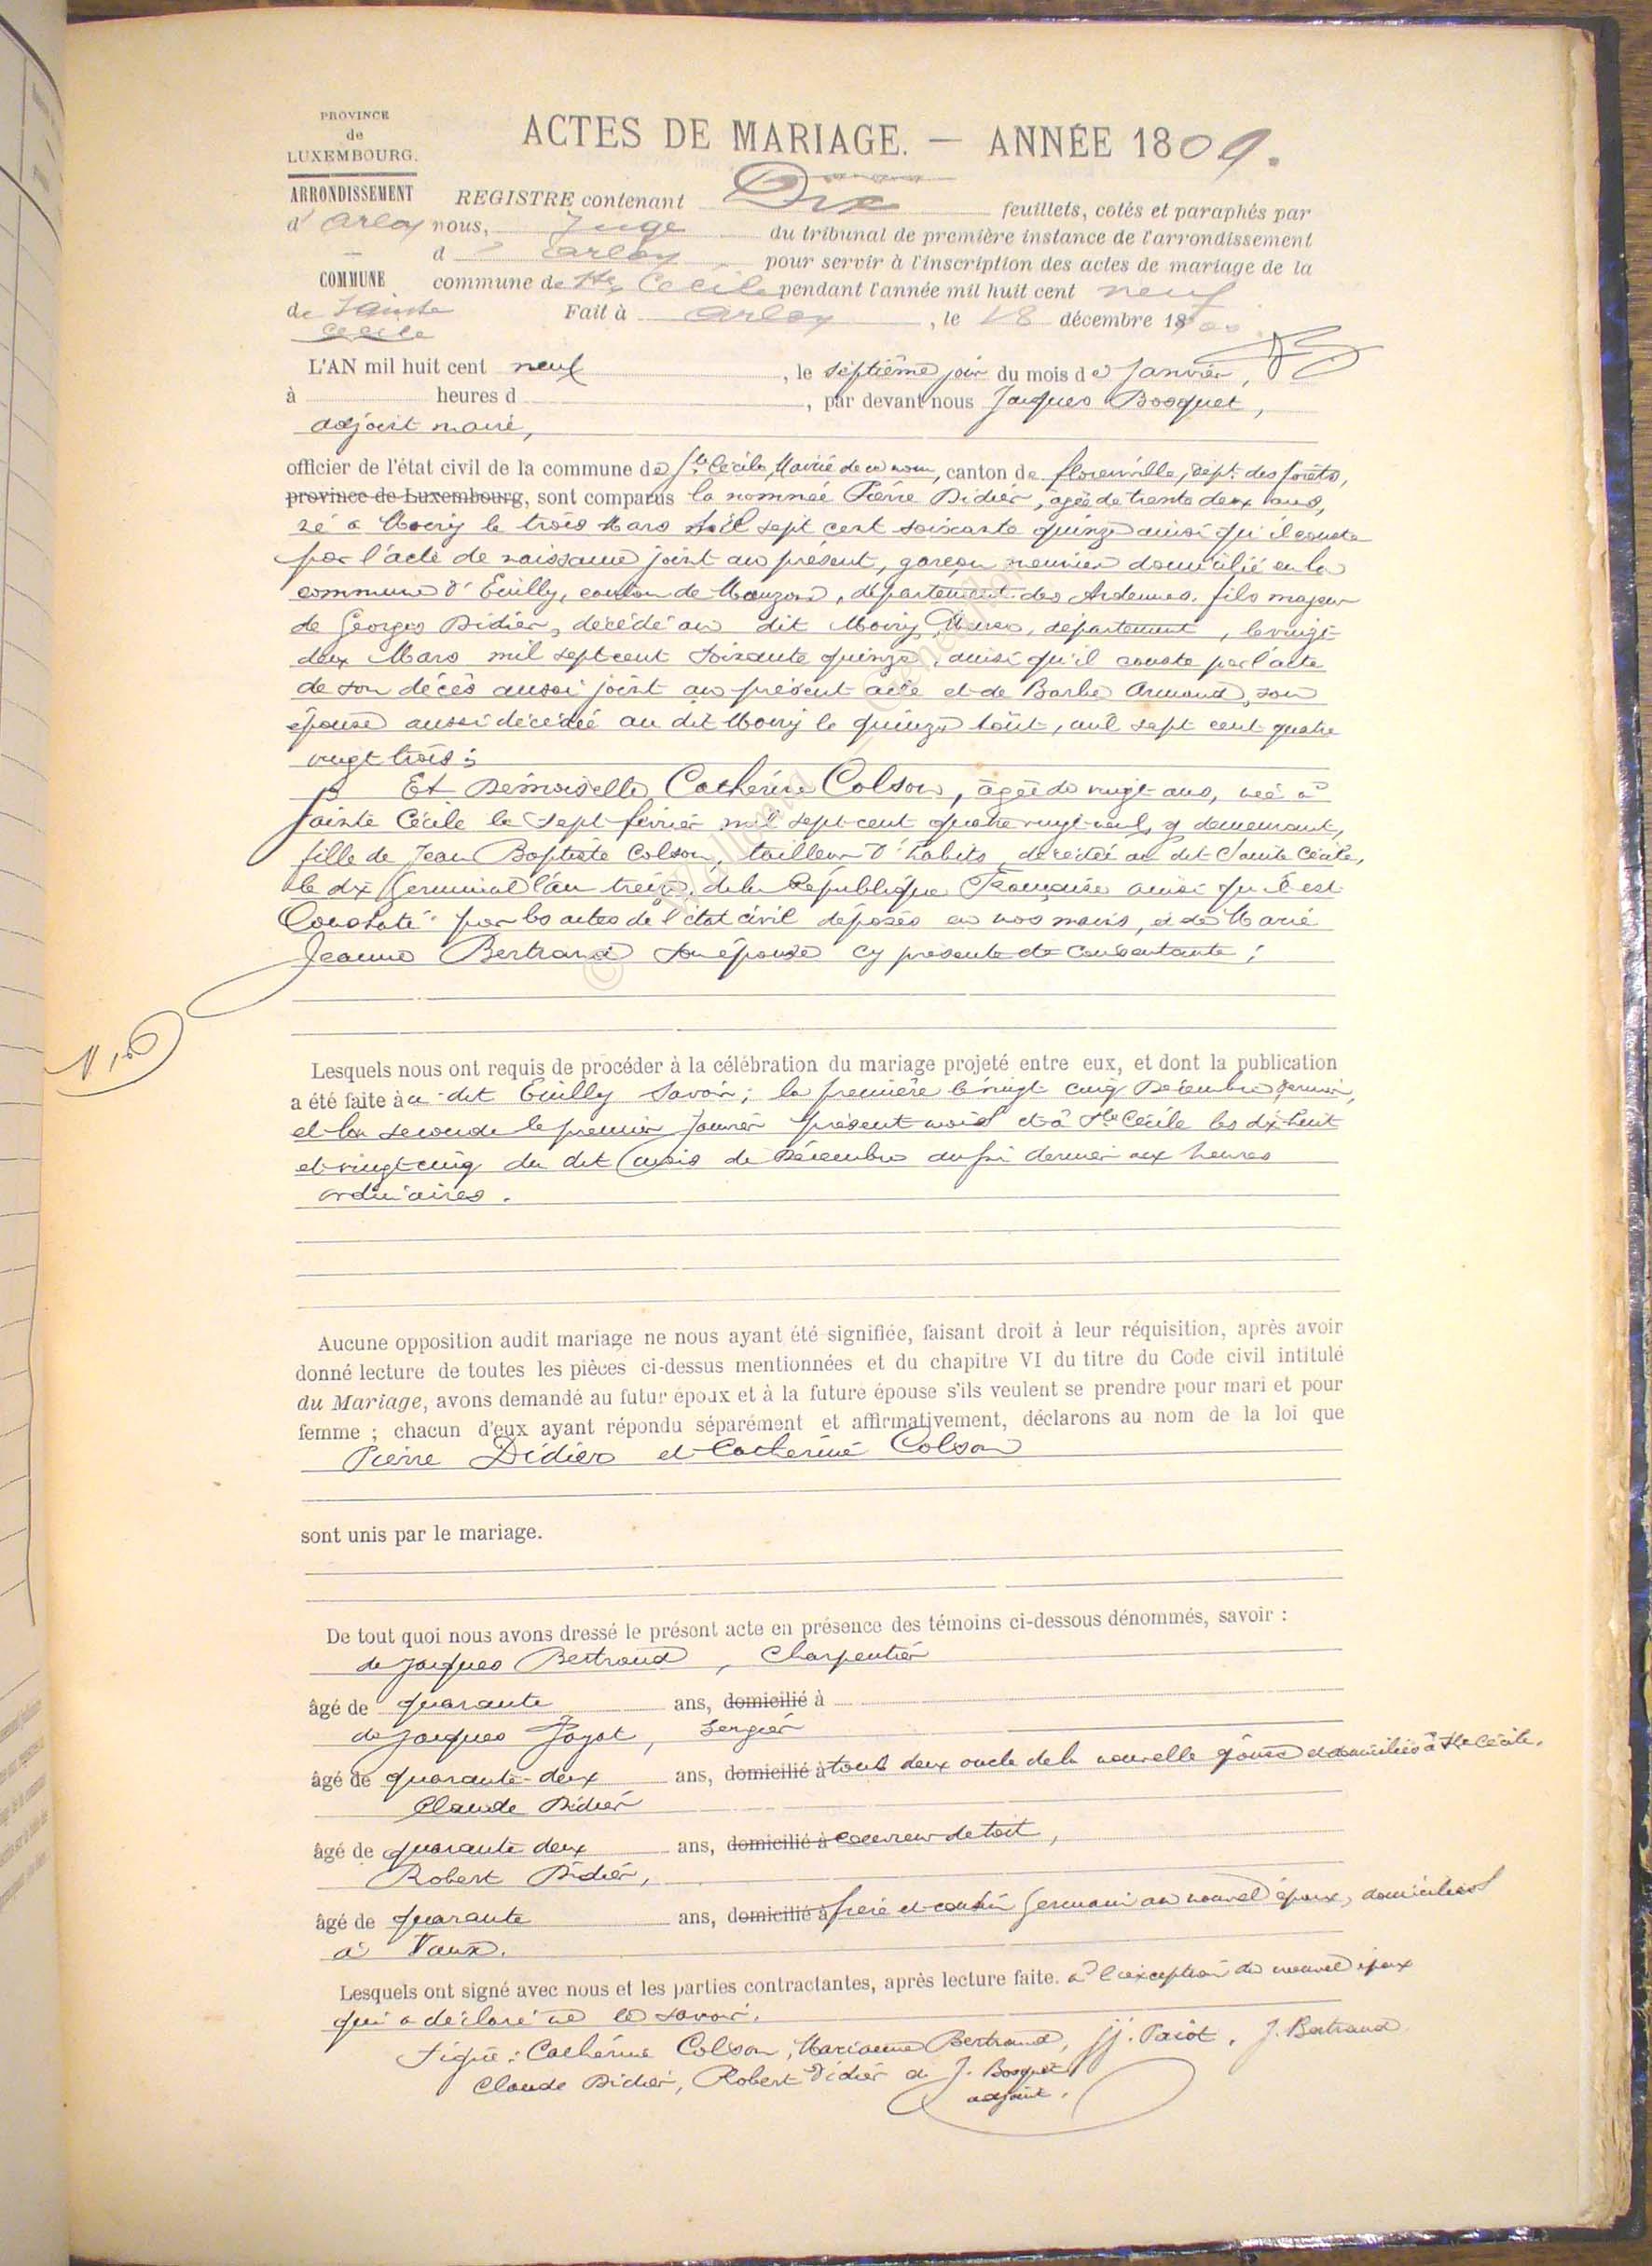 PROVINCE
de
LUXEMBOURG.
ACTES DE MARIAGE. — ANNÉE 1809.
ARRONDISSEMENT
d'Arlon
COMMUNE
de Sainte
Cécile
REGISTRE contenant Dix feuillets, cotés et paraphés par
nous, Juge du tribunal de première instance de l'arrondissement
d'Arlon pour servir à l'inscription des actes de mariage de la
commune de Ste Cécile pendant l'année mil huit cent neuf
Fait à Arlon, le 18 décembre 18
L'AN mil huit cent neuf, le septième jour du mois de Janvier,
à heures d, par devant nous Jacques Bosquet,
adjoint maire,
officier de l'état civil de la commune de Ste Cécile, Mairie de ce nom, canton de florenville, dépt. des forêts,
province de Luxembourg, sont comparus le nommé Pierre Didier, âgé de trente deux ans,
né à Moiry le trois Mars Mil sept cent soixante quinze ainsi qu'il conste
par l'acte de naissance joint au présent, garçon meunier domicilié en la
commune d'Euilly, canton de Mouzon, département des Ardennes, fils majeur
de Georges Didier, décédé au dit Moiry, Meuse, département, le vingt
deux Mars mil sept cent soixante quinze, ainsi qu'il conste par l'acte
de son décès aussi joint au présent acte et de Barbe Armand, son
épouse aussi décédée au dit Moiry le quinze Août, mil sept cent quatre
vingt trois;
Et Demoiselle Catherine Colson, âgée de vingt ans, née à
Sainte Cécile le sept février mil sept cent quatre vingt neuf, y demeurant,
fille de Jean Baptiste Colson, tailleur d'habits, décédé au dit Sainte Cécile,
le dix Germinal l'an treize de la République Française ainsi qu'il est
Constaté par les actes de l'état civil déposés en nos mains, et de Marie
Jeanne Bertrand son épouse cy présente et consentante;
Lesquels nous ont requis de procéder à la célébration du mariage projeté entre eux, et dont la publication
a été faite à au dit Euilly savoir; la première le vingt cinq Décembre dernier,
et la seconde le premier Janvier présent mois et à Ste Cécile les dix huit
et vingt cinq du dit mois de Décembre aussi dernier aux heures
ordinaires.
Aucune opposition audit mariage ne nous ayant été signifiée, faisant droit à leur réquisition, après avoir
donné lecture de toutes les pièces ci-dessus mentionnées et du chapitre VI du titre du Code civil intitulé
du Mariage, avons demandé au futur époux et à la future épouse s'ils veulent se prendre pour mari et pour
femme ; chacun d'eux ayant répondu séparément et affirmativement, déclarons au nom de la loi que
Pierre Didier et Catherine Colson
sont unis par le mariage.
De tout quoi nous avons dressé le présent acte en présence des témoins ci-dessous dénommés, savoir :
de Jacques Bertrand, Charpentier
âgé de quarante ans, domicilié à
de Jacques Payot, sergier
âgé de quarante-deux ans, domicilié à tout deux oncle de la nouvelle épouse et domiciliés à Ste Cécile.
Claude Didier
âgé de quarante deux ans, domicilié à couvreur de toit,
Robert Didier,
âgé de quarante ans, domicilié à frère et cousin germain au nouvel époux, domiciliés
à Vaux.
Lesquels ont signé avec nous et les parties contractantes, après lecture faite. à l'exception du nouvel époux
qui a déclaré ne le savoir.
Signé: Catherine Colson, Marianne Bertrand, JJ. Paiot, J. Bertrand
Claude Didier, Robert Didier et J. Bosquet
adjoint.